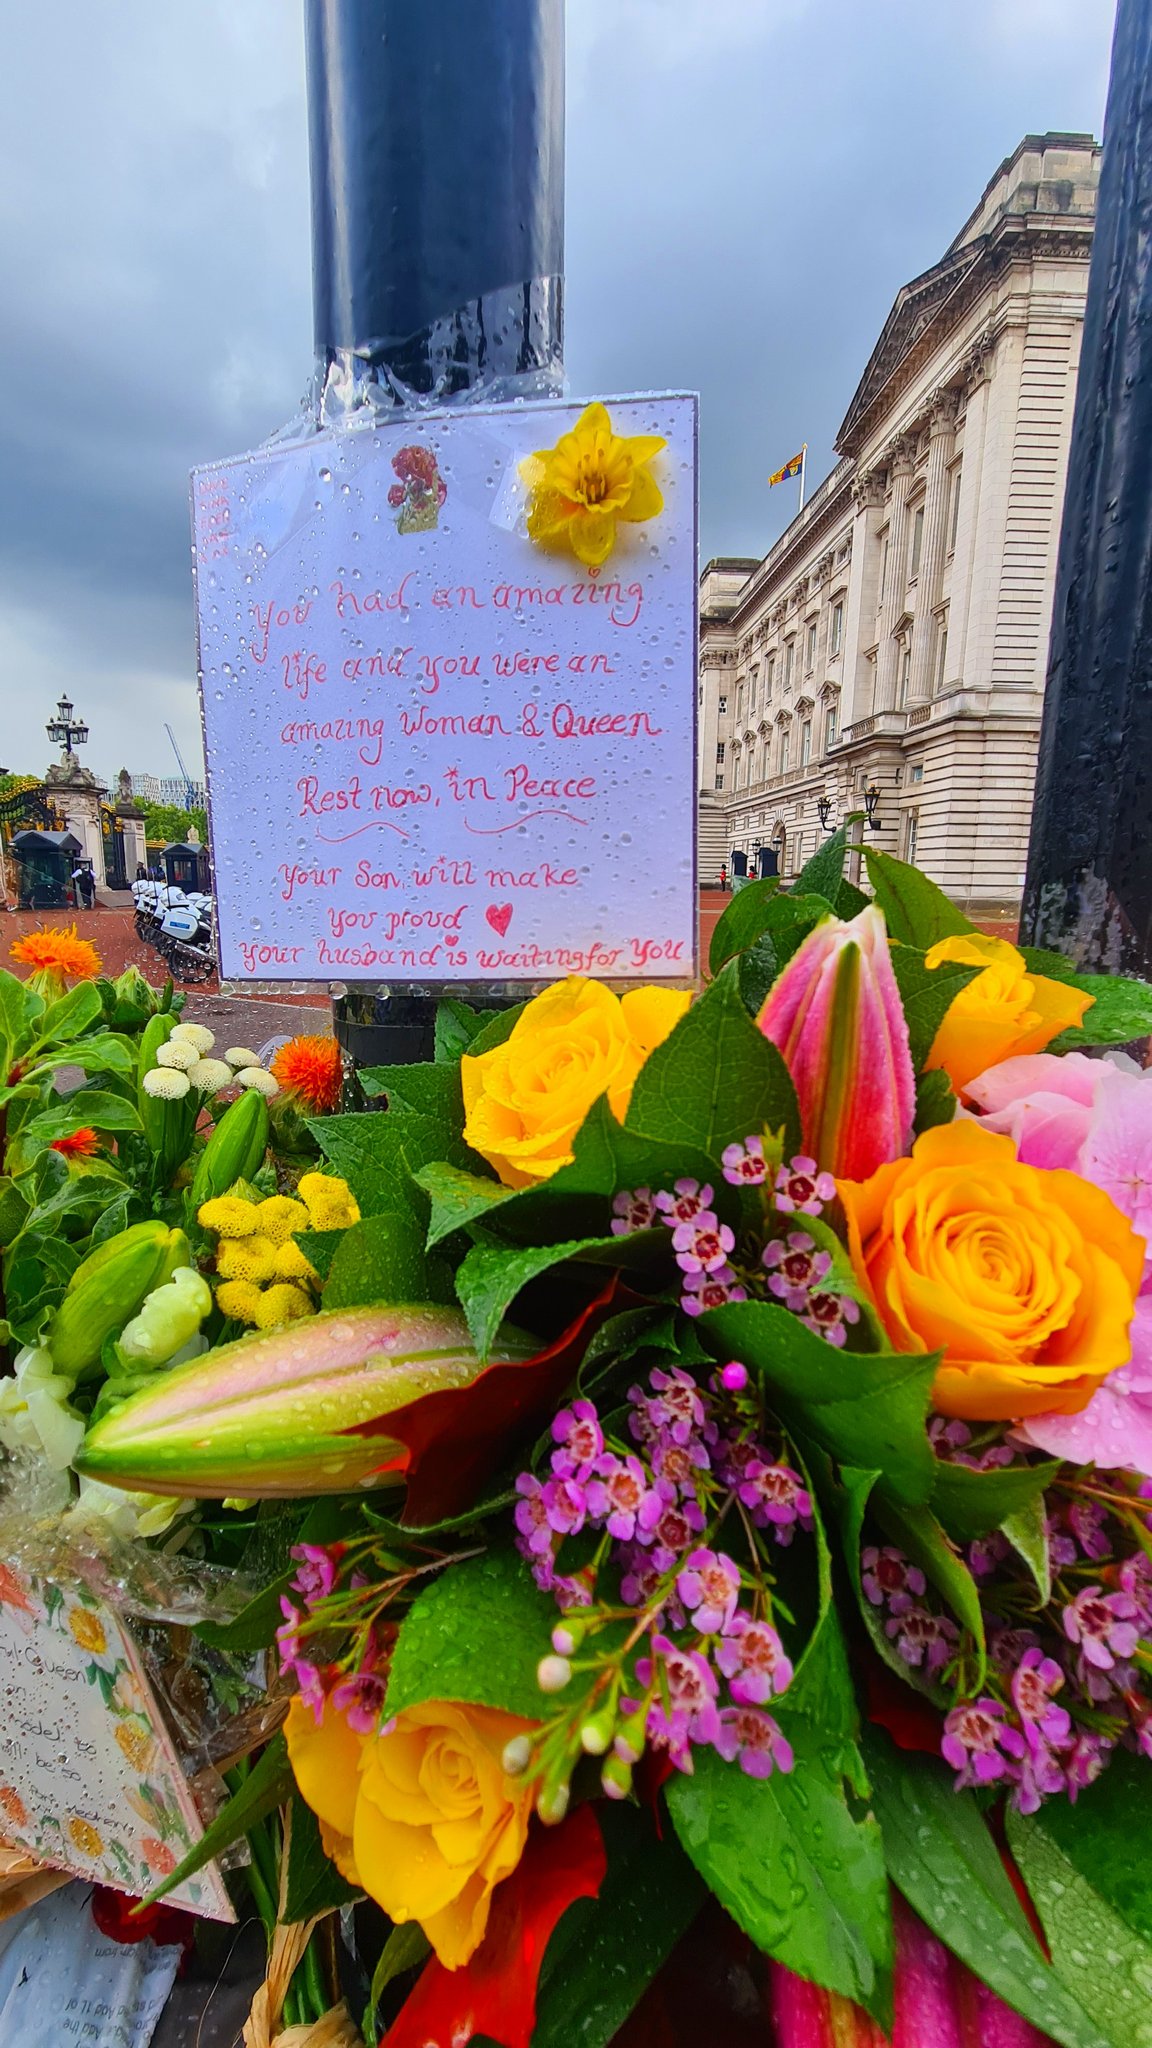 You had an amazing
life and you were an
amazing Woman & Queen
Rest now, in Peace
your Son, will make
you proud
your husband is waiting for you
Queen